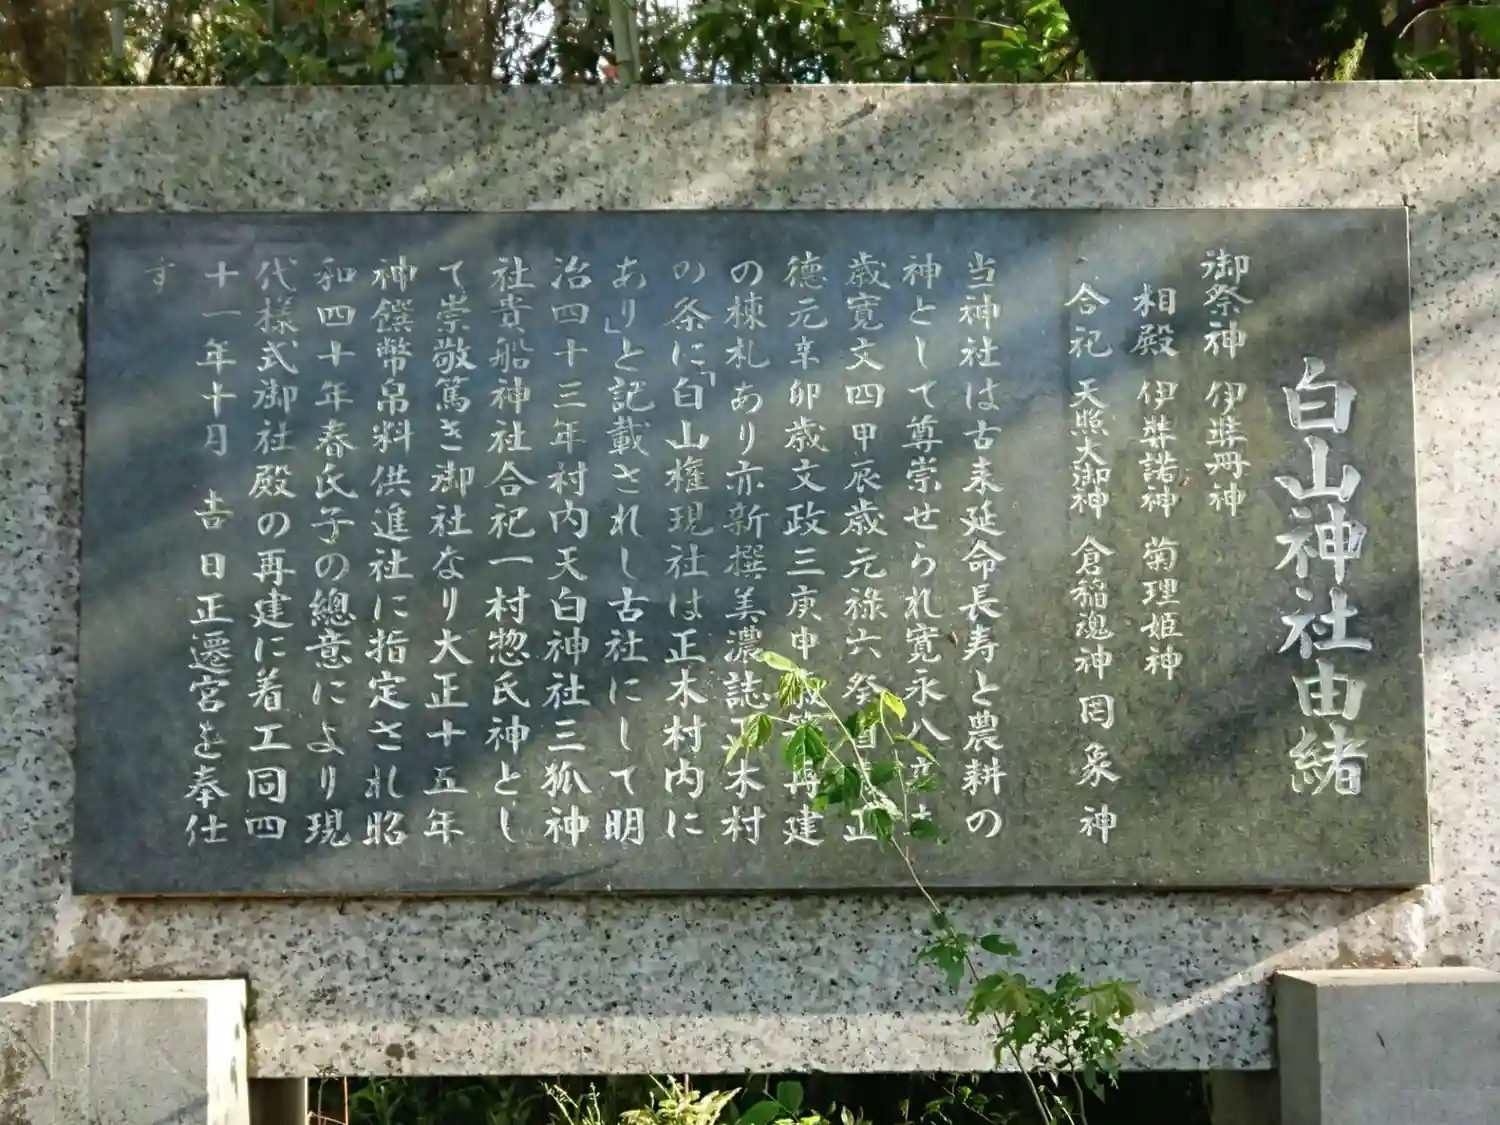 白山神社由緒
御祭神 伊弉冊神
相殿 伊弉諾神 菊理姫神
合祀 天照大御神 倉稲魂神 罔象神
当神社は古来延命長寿と農耕の
神として尊崇せられ寛永八辛
歳寛文四甲辰歳元禄六癸酉 正
徳元辛卯歳文政三庚申歳等再建
の棟札あり亦新撰美濃誌正木村
の条に「白山権現社は正木村内に
あり」と記載されし古社にして明
治四十三年村内天白神社三狐神
社貴船神社合祀一村惣氏神とし
て崇敬篤き御社なり大正十五年
神饌幣帛料供進社に指定され昭
和四十年春氏子の總意により現
代様式御社殿の再建に着工同四
十一年十月 吉日正遷宮を奉仕
す